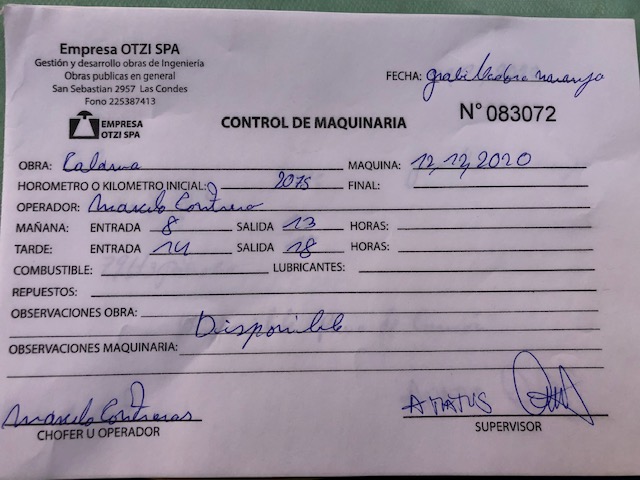 Empresa OTZI SPA
Gestión y desarrollo obras de Ingeniería
Obras publicas en general
San Sebastian 2957 Las Condes
Fono 225387413
FECHA:
EMPRESA
OTZI SPA
CONTROL DE MAQUINARIA N° 083072
OBRA: Caldera MAQUINA: 12,12,2020
HOROMETRO O KILOMETRO INICIAL: FINAL:
OPERADOR: Contreras
MAÑANA: ENTRADA 8 SALIDA 13 HORAS:
TARDE: ENTRADA 14 SALIDA 18 HORAS:
COMBUSTIBLE: LUBRICANTES:
REPUESTOS:
OBSERVACIONES OBRA: Disponible
OBSERVACIONES MAQUINARIA:
Contreras
CHOFER U OPERADOR SUPERVISOR